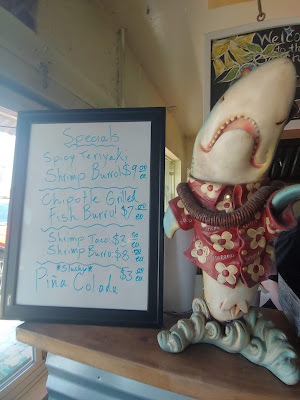 Specials
Spicy Teriyaki
Shrimp Burro! $9.00 ea
Chipotle Grilled
Fish Burro! $7.00 ea
Shrimp Taco! $2.50 ea
Shrimp Burro! $8.00 ea
*Slushy*
Piña Colada $3.50 ea
Welcome
to the